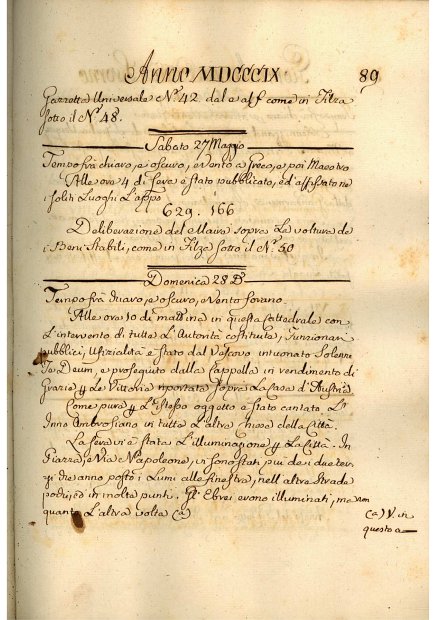 Anno MDCCCIX 89
Gazzetta Universale N.º 42 dal e al f come in Filza
sotto il N.º 48.
Sabato 27 Maggio
Tempo frà chiaro, e oscuro, e vento a Greco, e poi Maestro
Alle ore 4 di sera è stato pubblicato, ed affissato ne
soliti Luoghi L'appo
629. 166
Deliberazione del Maire sopra La voltura de
i Beni Stabili, come in Filza sotto il N.º 50
Domenica 28 D.º
Tempo frà chiaro, e oscuro, e vento
Alle ore 10 di mattina in questa Cattedrale con
L'intervento di tutte L'Autorità costituite, Funzionari
pubblici, Ufizialità è stato dal Vescovo intuonato Solenne
Te Deum, e proseguito dalla Cappella in rendimento di
Grazie p Le Vittorie riportate sopra La Casa d'Austria
Come pure p L'istesso oggetto è stato cantato L'
Inno Ambrosiano in tutte L'altre Chiese della Città.
La sera vi è stata L'illuminazione p La Città. In
Piazza, e Via Napoleone, vi sono stati più de i due ter
zi che anno posto i Lumi alle finestre, nell'altre strade
pochi, ed in molta punti. Gl'Ebrei erono illuminati, ma non
quanto L'altra volta (a)
(a) V. in
questo a